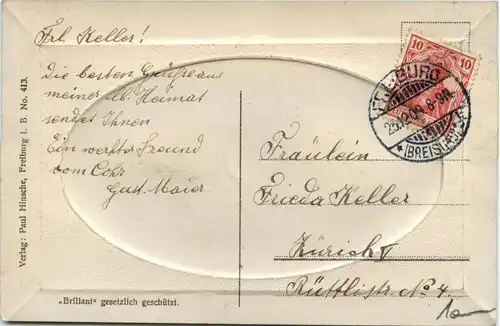 Frl. Keller!
Die besten Grüße aus
meiner lb. Heimat
sendet Ihnen
Ein werter Freund
vom Cohr
Gust. Maier
Fräulein
Frieda Keller
Zürich V
Rüttlistr. No 4.
10 10
FREIBURG
(BREISGAU)
Verlag: Paul Hinsche, Freiburg i. B. No. 413.
„Brillant" gesetzlich geschützt.